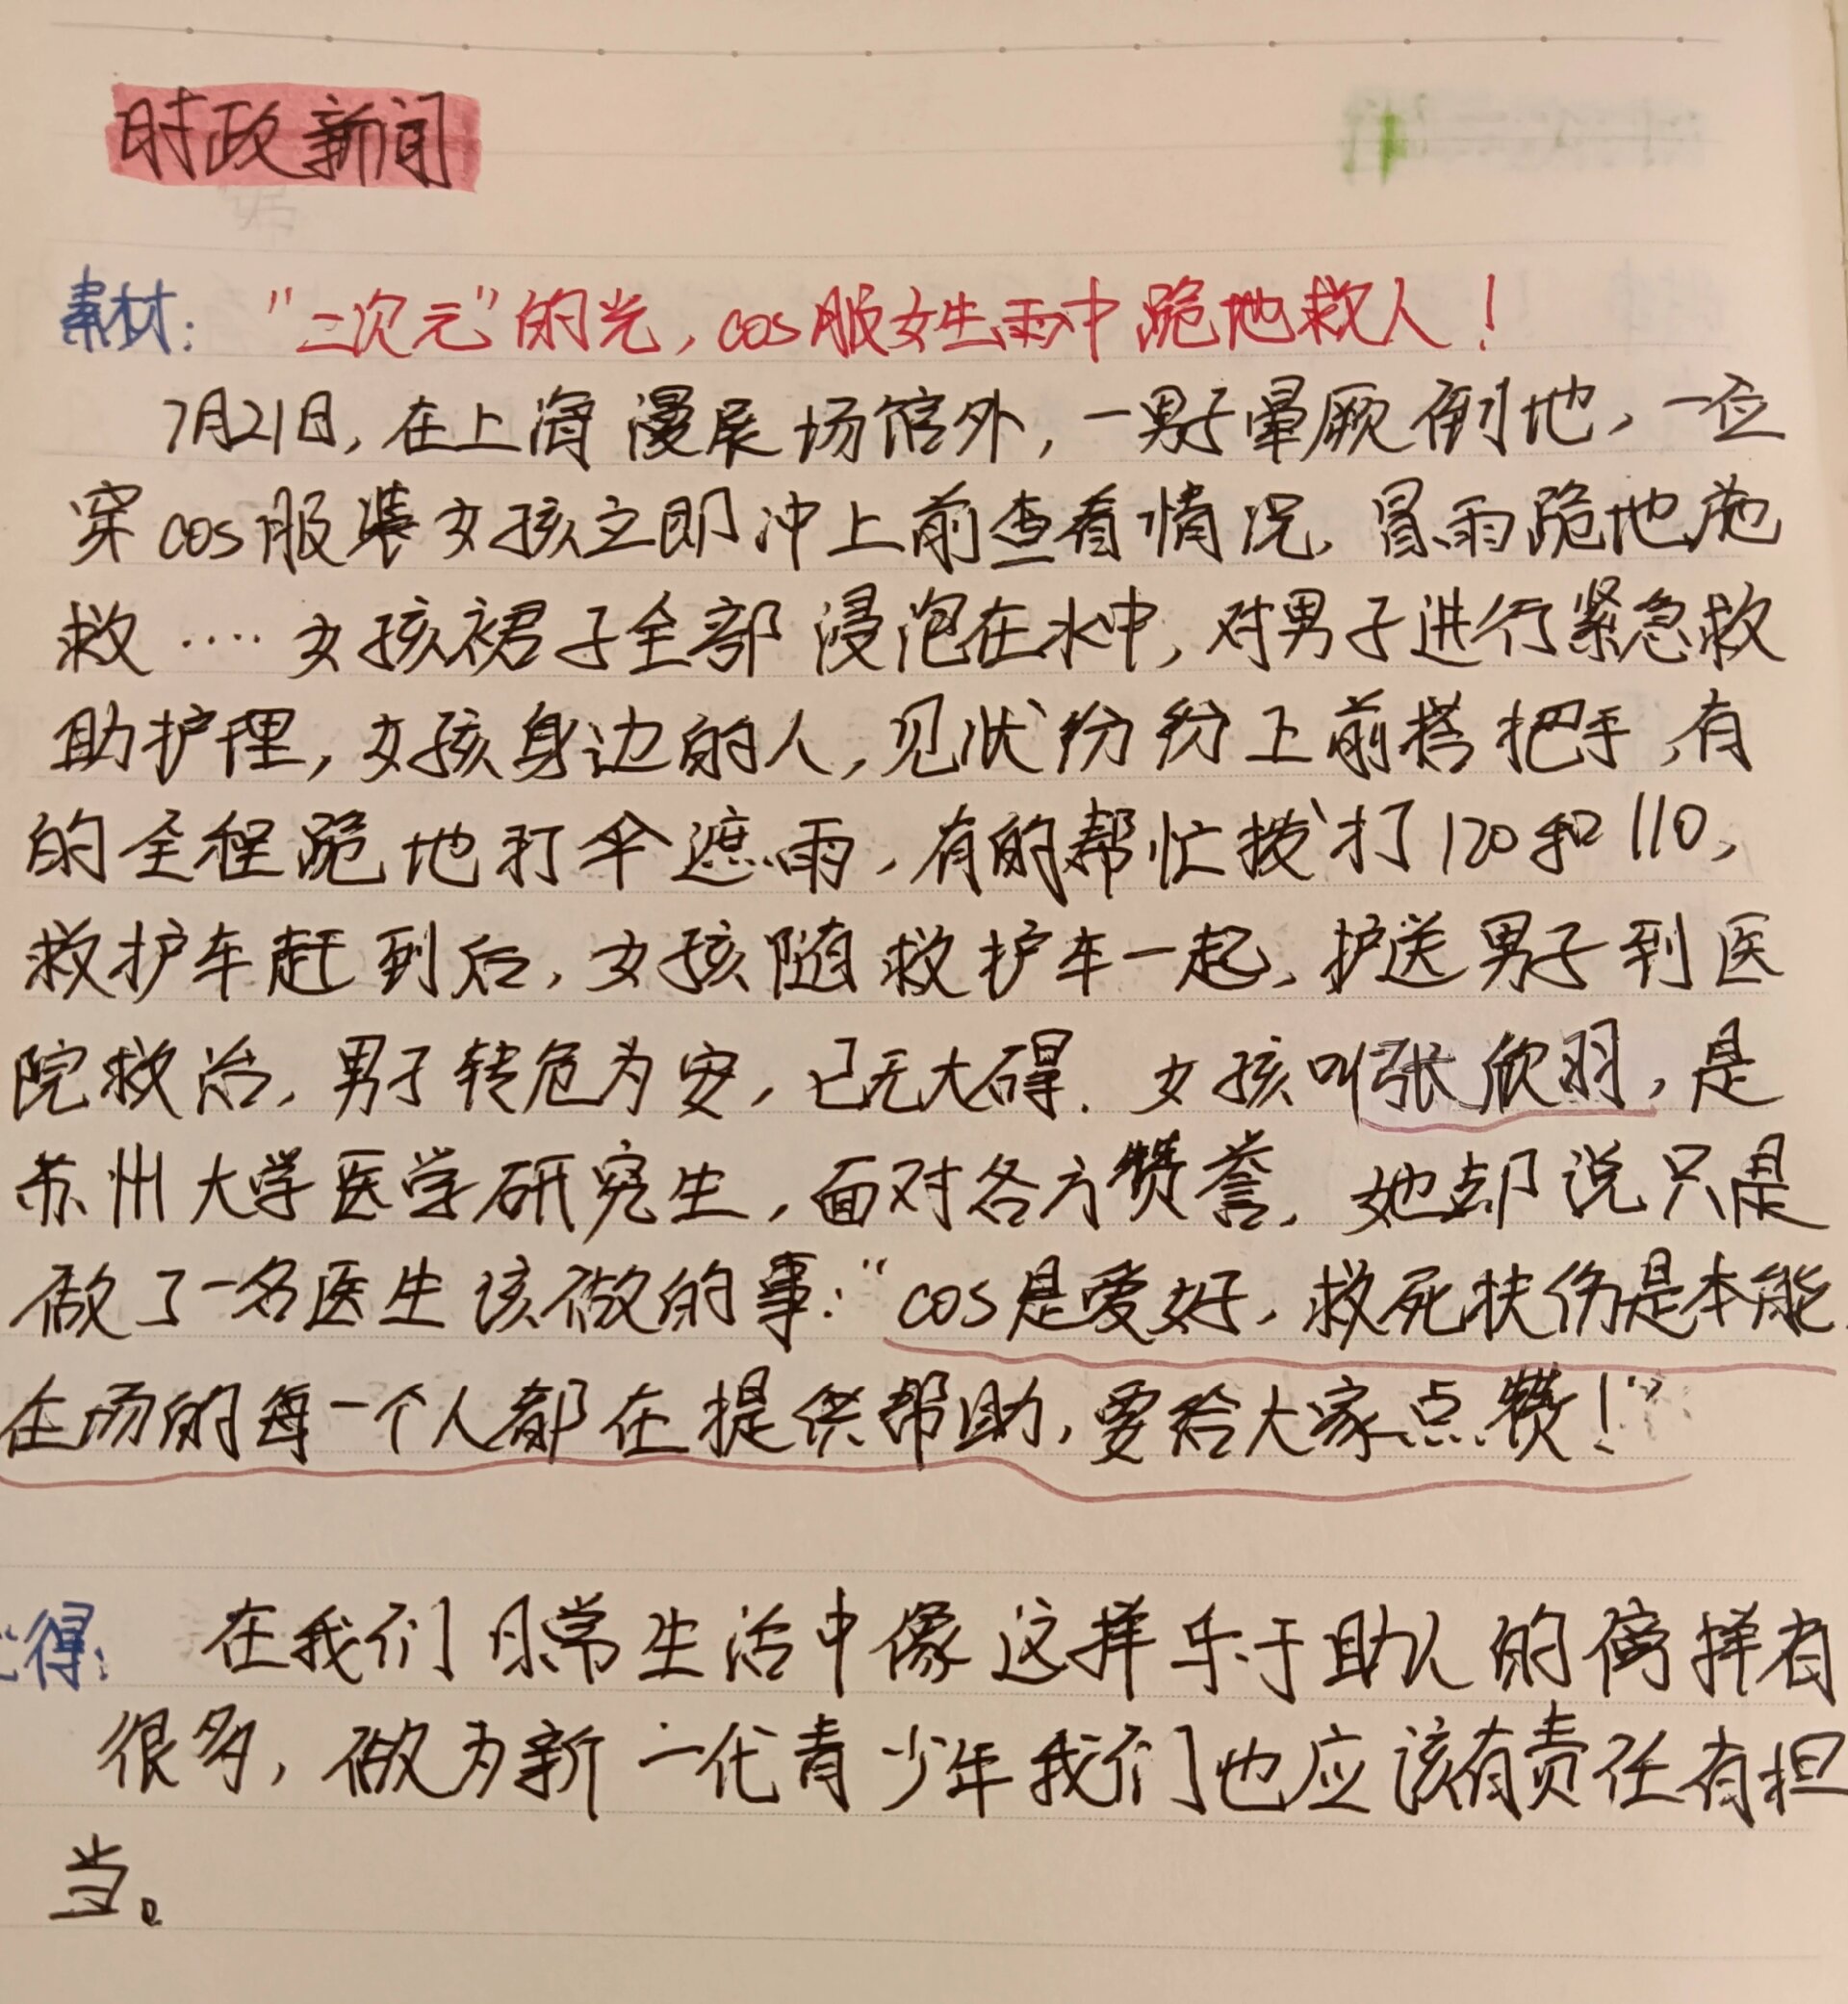 时政新闻
素材："二次元"的光，cos服女生雨中跪地救人！
7月21日，在上海漫展场馆外，一男子晕厥倒地，一位
穿cos服装女孩立即冲上前查看情况，冒雨跪地施
救····女孩裙子全部浸泡在水中，对男子进行紧急救
助护理，女孩身边的人，见状纷纷上前搭把手，有
的全程跪地打伞遮雨，有的帮忙拨打120和110，
救护车赶到后，女孩随救护车一起，护送男子到医
院救治，男子转危为安，已无大碍．女孩叫张欣羽，是
苏州大学医学研究生，面对各方赞誉，她却说只是
做了一名医生该做的事："cos是爱好，救死扶伤是本能．
在场的每一个人都在提供帮助，要给大家点赞！"
得：在我们日常生活中像这样乐于助人的傍样有
很多，做为新一代青少年我们也应该有责任有担
当。